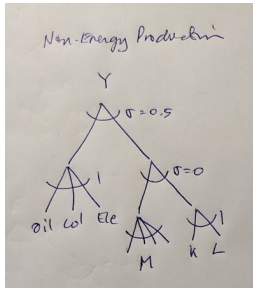 Non-Energy Production
Y
σ=0.5
1
σ=0
oil col Ele
1
M
K L